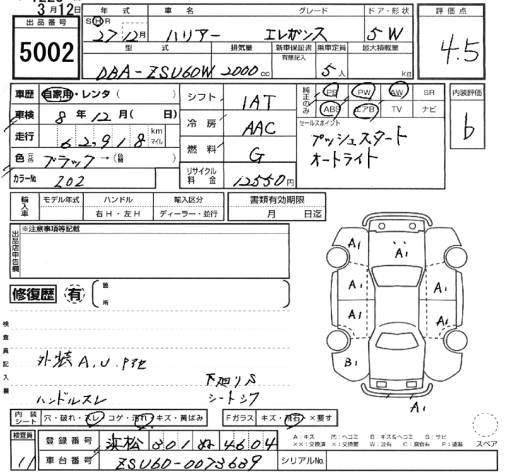 3月12日
出品番号 5002
年式 車名 グレード ドア・形状
S H R 27年12月 ハリアー エレガンス 5W
型式 排気量 新車保証書 有無記入 乗車定員 最大積載量
DBA-ZSU60W 2000cc 5人 kg
評価点 4.5
車歴 自家用・レンタ( )
車検 8年12月( 日)
走行 62,918 km マイル
色 ブラック→
カラーNo 202
シフト 1AT
冷房 AAC
燃料 G
リサイクル料金 12550円
純正のみ PS PW AW SR
ABS エアB TV ナビ
セールスポイント
プッシュスタート
オートライト
内装評価 b
輸入車 モデル年式 ハンドル 右H・左H 輸入区分 ディーラー・並行
書類有効期限 月 日迄
出品店申告欄 ※注意事項等記載
修復歴 有 箇所
検査員記入欄
外装A.U.P他
下廻りS
ハンドルスレ シートシワ
A1 A1 A1
A1 A1 A1
B1 A1
A1
内装シート 穴・破れ・スレ コゲ・汚れ キズ・黄ばみ
Fガラス キズ・飛石 ×要す
A:キズ
スペア
検査員 11
登録番号 浜松 301 ぬ 4604
車台番号 ZSU60-0073639
シリアルNo.